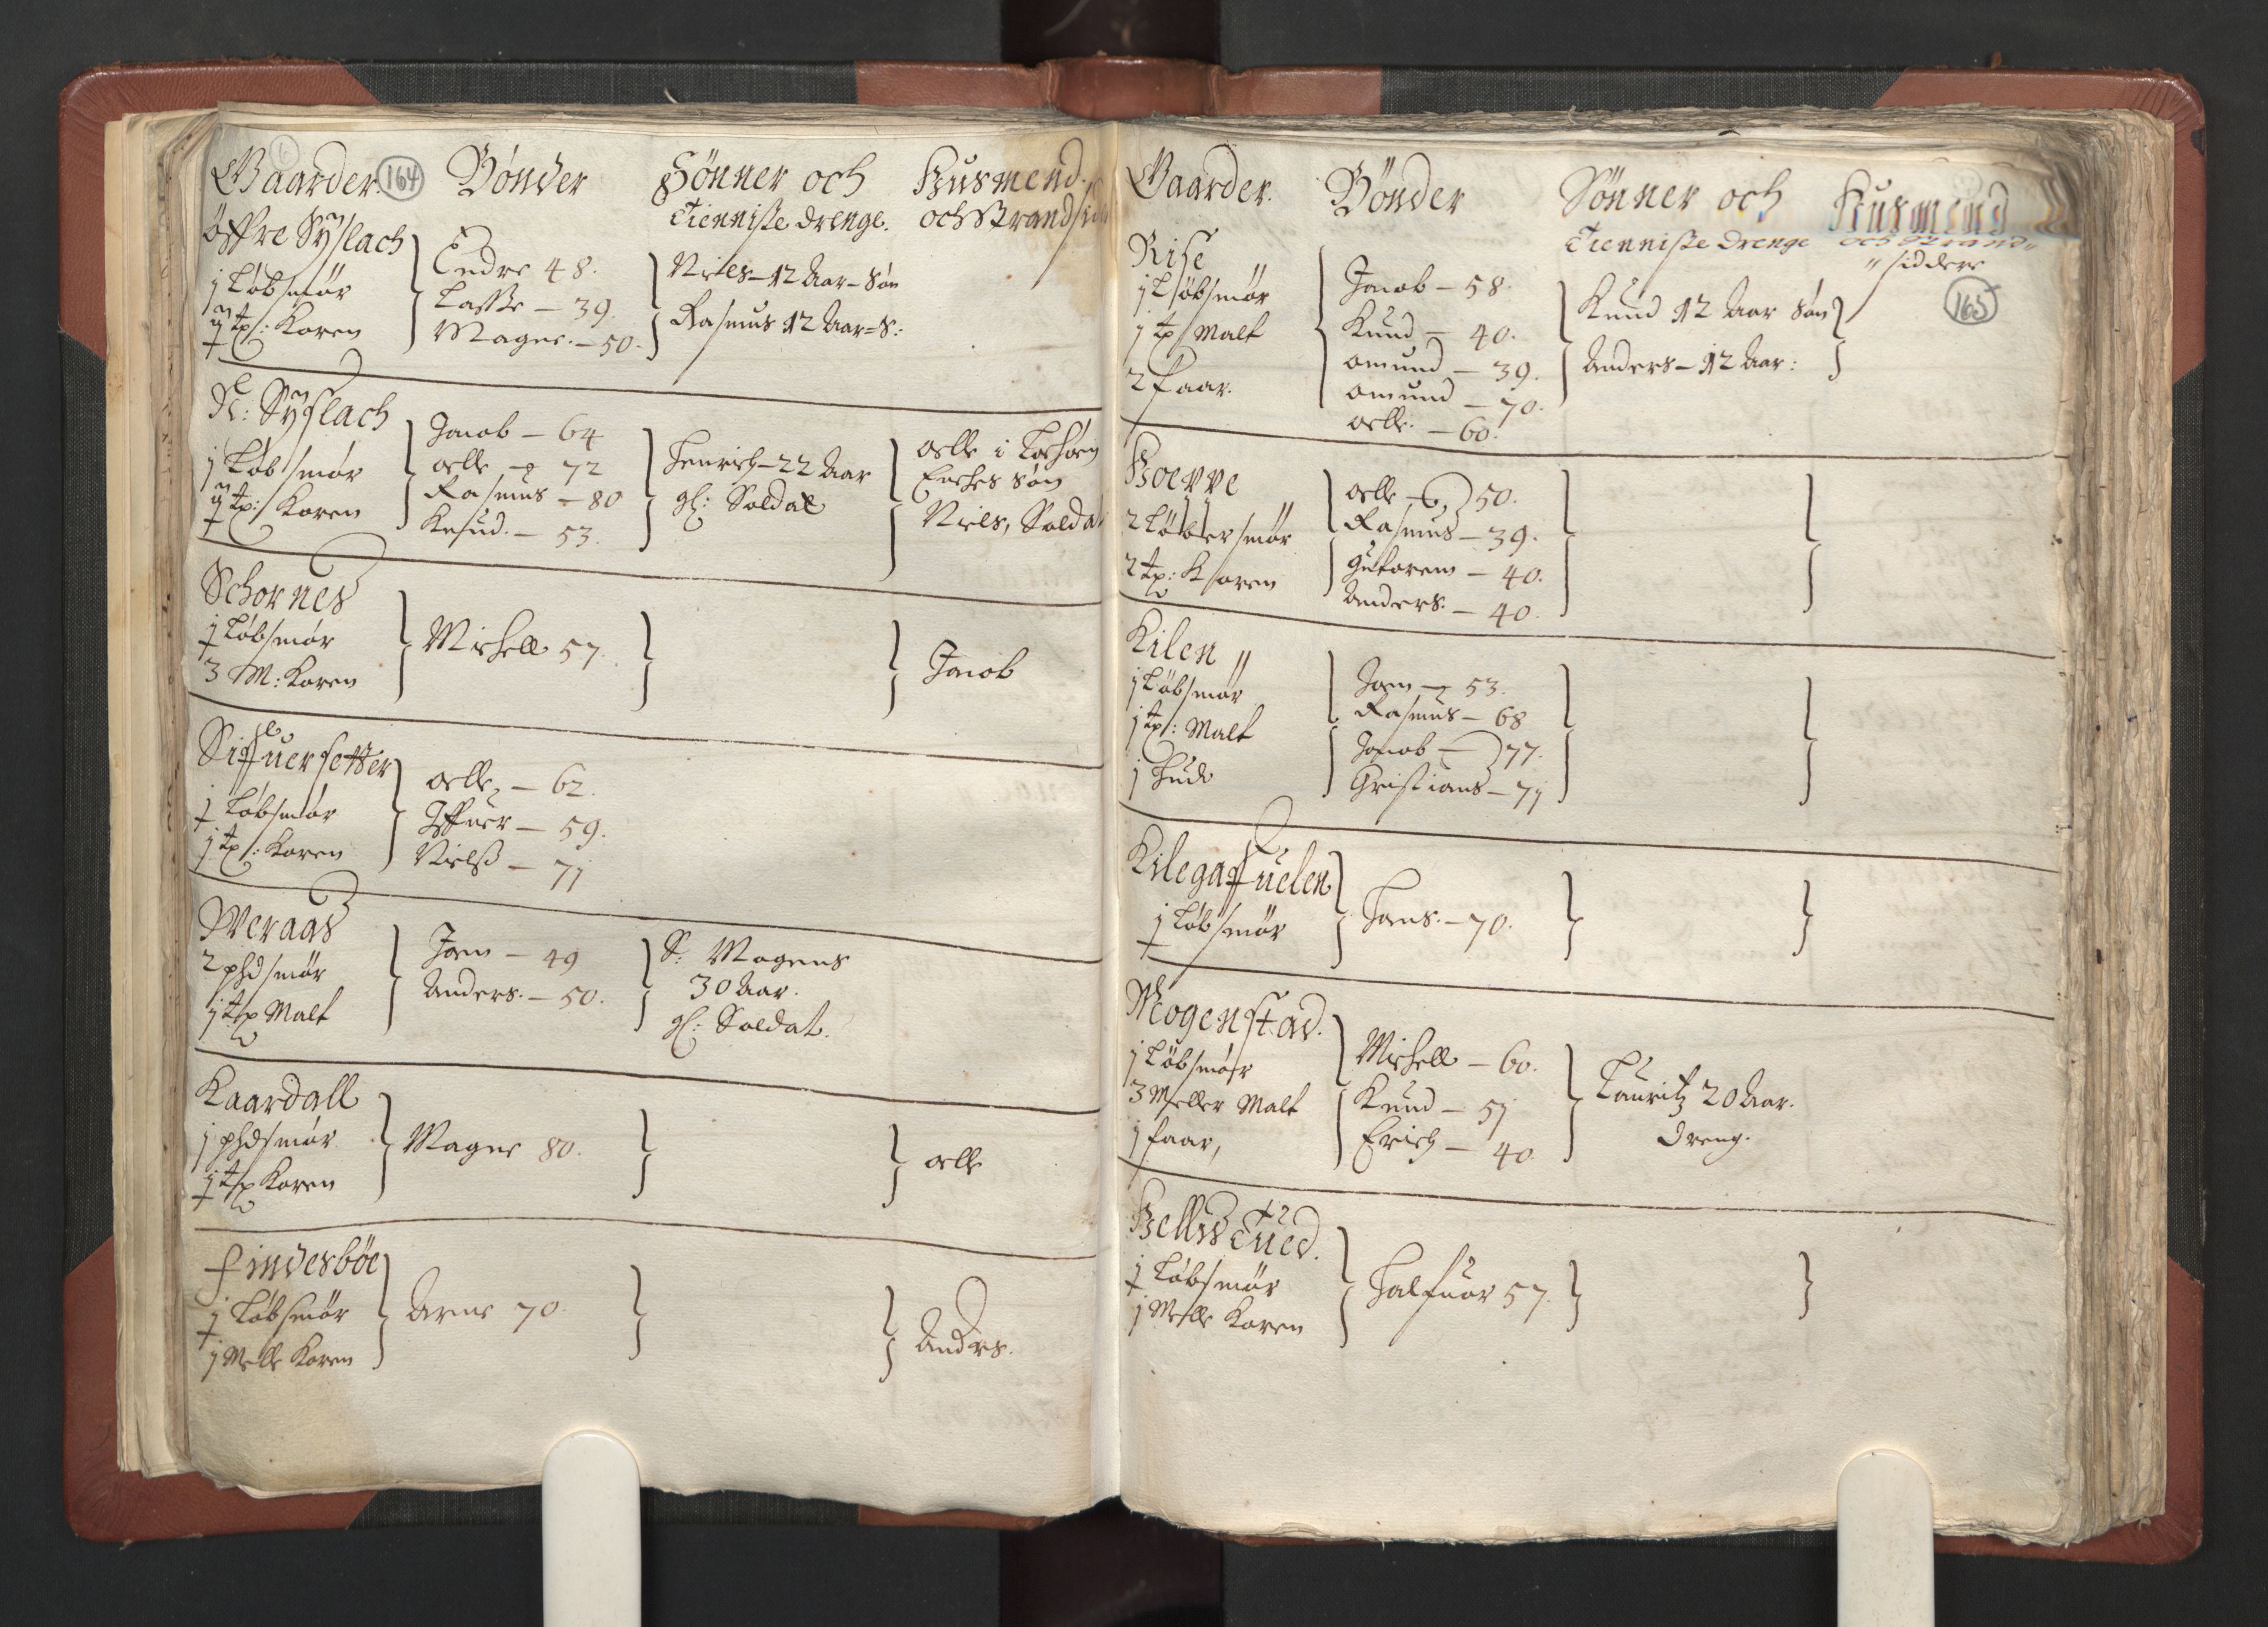 Gaarder. 164 Bönder Sönner och Husmend
Tienniste drenge. och Strandsid
Öffre Syslach
j Løb smör
j tp: Koren
Endre 48.
Lasse – 39.
Magne. – 50.
Niels – 12 Aar – Søn
Rasmus 12 Aar – S:
N: Syslach
j Løb smör
j tp: Koren
Jacob – 64
Oelle – 72
Rasmus – 80
Knud. – 53.
Henrich – 22 Aar
gl: Soldat
Oelle i
Søn
Niels, Soldat
Schornes
j Løbsmör
3 M: Koren
Michell 57.
Jacob
Siffuersetter
j Løbsmör
j tp: Koren
Oelle – 62.
Iffuer – 59.
Nielss – 7j
Weraas
2 phd smör
j tp Malt
Jon – 49
Anders. – 50.
S: Mogens
30 Aar.
gl: Soldat.
Kaardall
j phd smör
j tp Koren
Magne 80.
Oelle
Findesbøe
j Løbsmör
j Melle Koren
Arne 70.
Anders.
Gaarder. Bönder Sönner och Husmend
Tienniste drenge och Strand
siddere
165
Rise
j Løbsmör
j tp Malt
2 faar.
Jacob – 58.
Knud – 40.
Omund – 39.
Omund – 70.
Oelle. – 60.
Knud 12 Aar Søn
Anders – 12 Aar:
2 Løber smör
2 tp: Koren
Oelle – 50.
Rasmus – 39.
Gutorem – 40.
Anders. – 40.
Kilen
j Løbsmör
j tp: Malt
j Hud
Jon – 53.
Rasmus – 68
Jacob – 77.
Christians – 7j
Kilegaffuelen
j Løb smör
Hans. – 70.
Mogenstad.
j Løbsmör
3 Meller Malt
j faar,
Michell – 60.
Knud – 5j
Erich – 40
Lauritz 20 Aar.
dreng.
j Løbsmör
j Melle Koren
Halfuor 57.